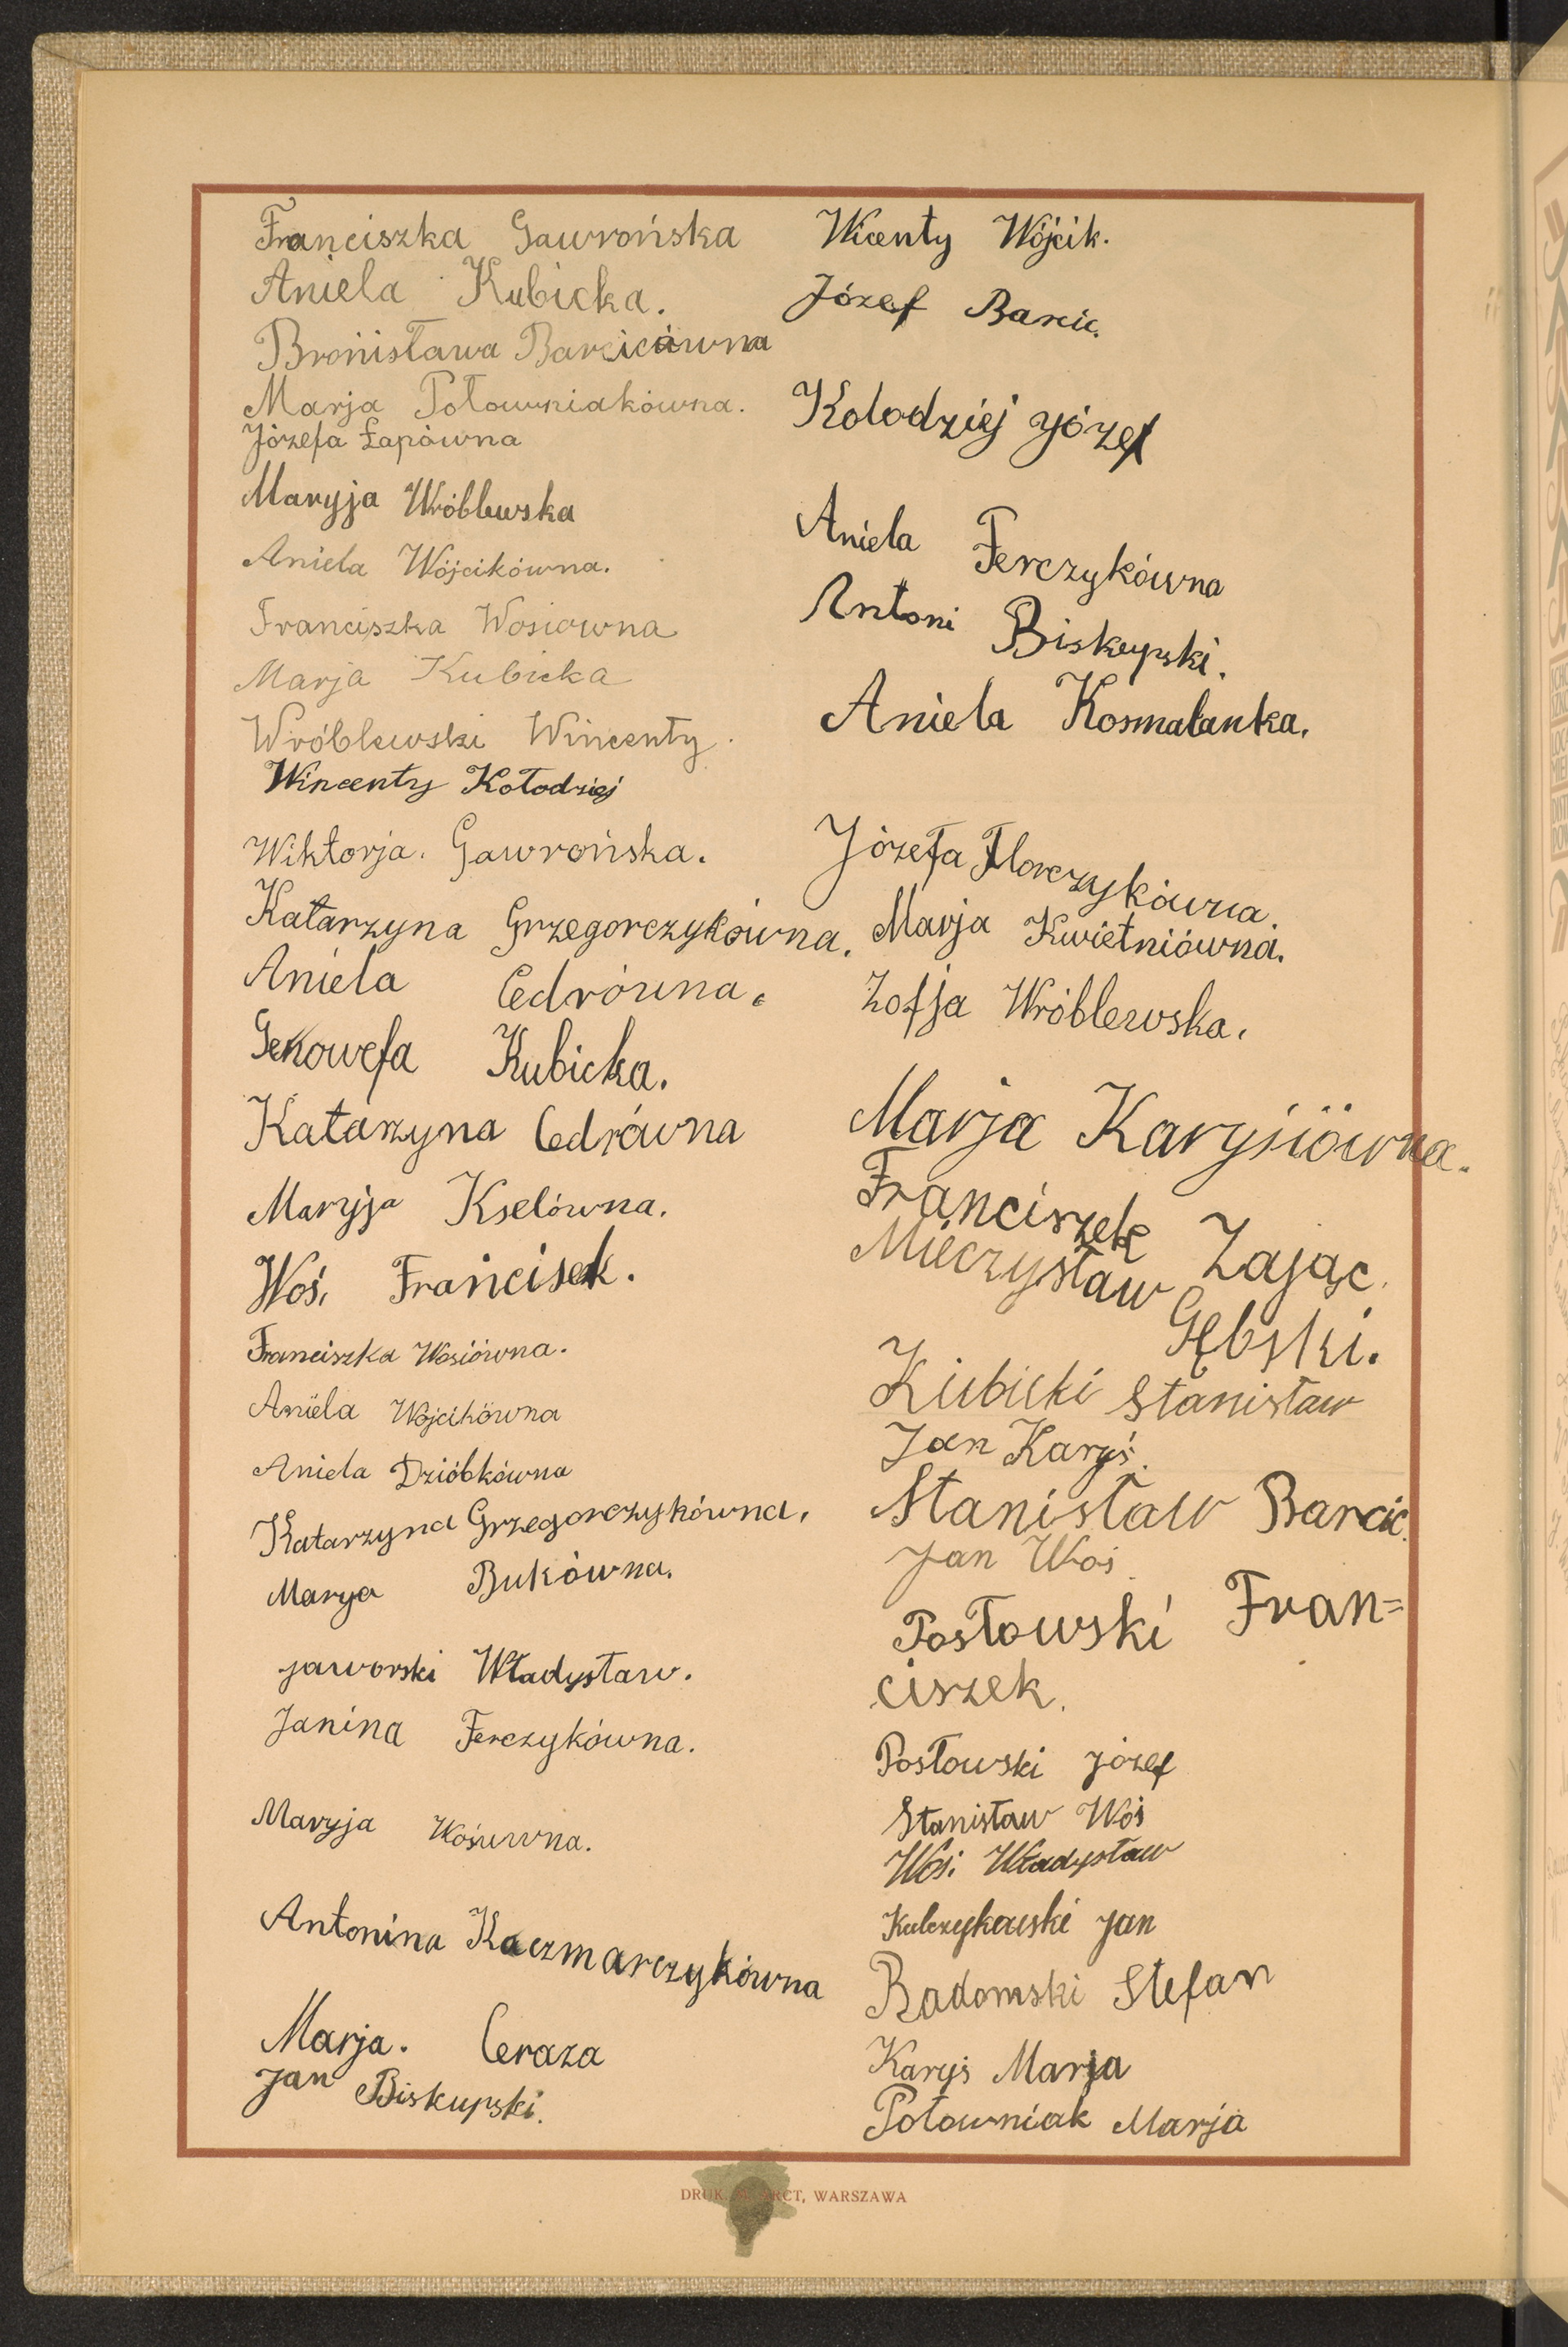 Franciszka Gawrońska
Aniela Kubicka.
Bronisława Barcicówna
Marja Połowniakówna.
Józefa Łapówna
Maryja Wróblewska
Aniela Wójcikówna.
Franciszka Wosiowna
Marja Kubicka
Wróblewski Wincenty.
Wincenty Kołodziej
Wiktorja. Gawrońska.
Katarzyna Grzegorczykówna.
Aniela Cedrówna.
Genowefa Kubicka.
Katarzyna Cedrówna
Maryja Kselówna.
Woś. Francisek.
Franciszka Wosiówna.
Aniela Wójcikówna
Aniela Dzióbkówna
Katarzyna Grzegorczykówna.
Marya Bukówna.
Jaworski Władysław.
Janina Ferczykówna.
Maryja
Antonina Kaczmarczykówna
Marja. Ceraza
Jan Biskupski.
Wicenty Wójcik.
Józef Barcic.
Kolodziej Józef
Aniela Ferczykówna
Antoni Biskupski.
Aniela Kosmalanka.
Józefa Florczykówna.
Marja Kwietniówna.
Zofja Wróblewska.
Marja Karysiówna.
Franciszek Zając.
Mieczysław Gębski.
Kubicki Stanisław
Jan Karyś.
Stanisław Barcic.
Jan Woś.
Posłowski Fran=
ciszek.
Posłowski Józef
Stanisław Woś
Woś. Władysław
Kulczykowski Jan
Radomski Stefan
Karyś Marja
Połowniak Marja
DRUK. M. ARCT, WARSZAWA